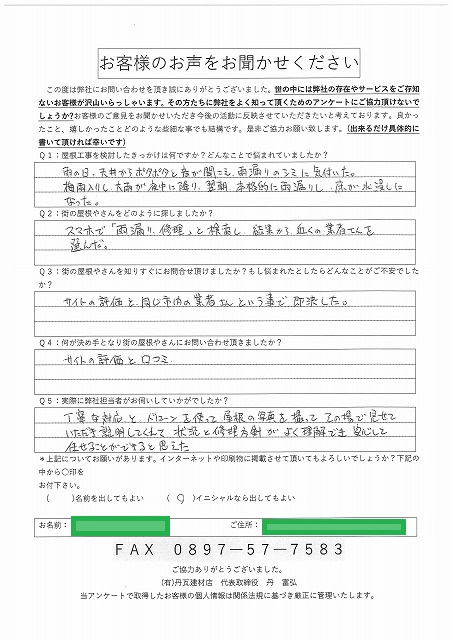 お客様のお声をお聞かせください
この度は弊社にお問い合わせを頂き誠にありがとうございました。世の中には弊社の存在やサービスをご存知
ないお客様が沢山いらっしゃいます。その方たちに弊社をよく知って頂くためのアンケートにご協力頂けないで
しょうか?お客様のご意見をお聞かせいただき今後の活動に反映させていただきたいと考えております。良かっ
たこと、嬉しかったことどのような些細な事でも結構です。是非ご協力お願い致します。(出来るだけ具体的に
書いて頂ければ幸いです)
Q1:屋根工事を検討したきっかけは何ですか?どんなことで悩まれていましたか?
雨の日、天井からポタポタと音が聞こえ、雨漏りのシミに気付いた。
梅雨入りし、大雨が夜中に降り、翌朝、本格的に雨漏りし、床が水浸しに
なった。
Q2:街の屋根やさんをどのように探しましたか?
スマホで「雨漏り、修理」と検索し、結果から近くの業者さんを
選んだ。
Q3:街の屋根やさんを知りすぐにお問合せ頂けましたか?もし悩まれたとしたらどんなことがご不安でした
か?
サイトの評価と、同じ市内の業者さんという事で即決した。
Q4:何が決め手となり街の屋根やさんにお問い合わせ頂きましたか?
サイトの評価と口コミ
Q5:実際に弊社担当者がお伺いしていかがでしたか?
丁寧な対応と、ドローンを使って屋根の写真を撮ってその場で見せて
いただき説明してくれて、状況と修理方針がよく理解でき安心して
任せることができると思えた
*上記についてお願いがあります。インターネットや印刷物に掲載させて頂いてもよろしいでしょうか?下記の
中から○印を
お付下さい。
( )名前を出してもよい ( ○ )イニシャルなら出してもよい
お名前: ご住所:
FAX 0897-57-7583
ご協力ありがとうございました。
(有)丹瓦建材店 代表取締役 丹 富弘
当アンケートで取得したお客様の個人情報は関係法規に基づき厳正に管理いたします。